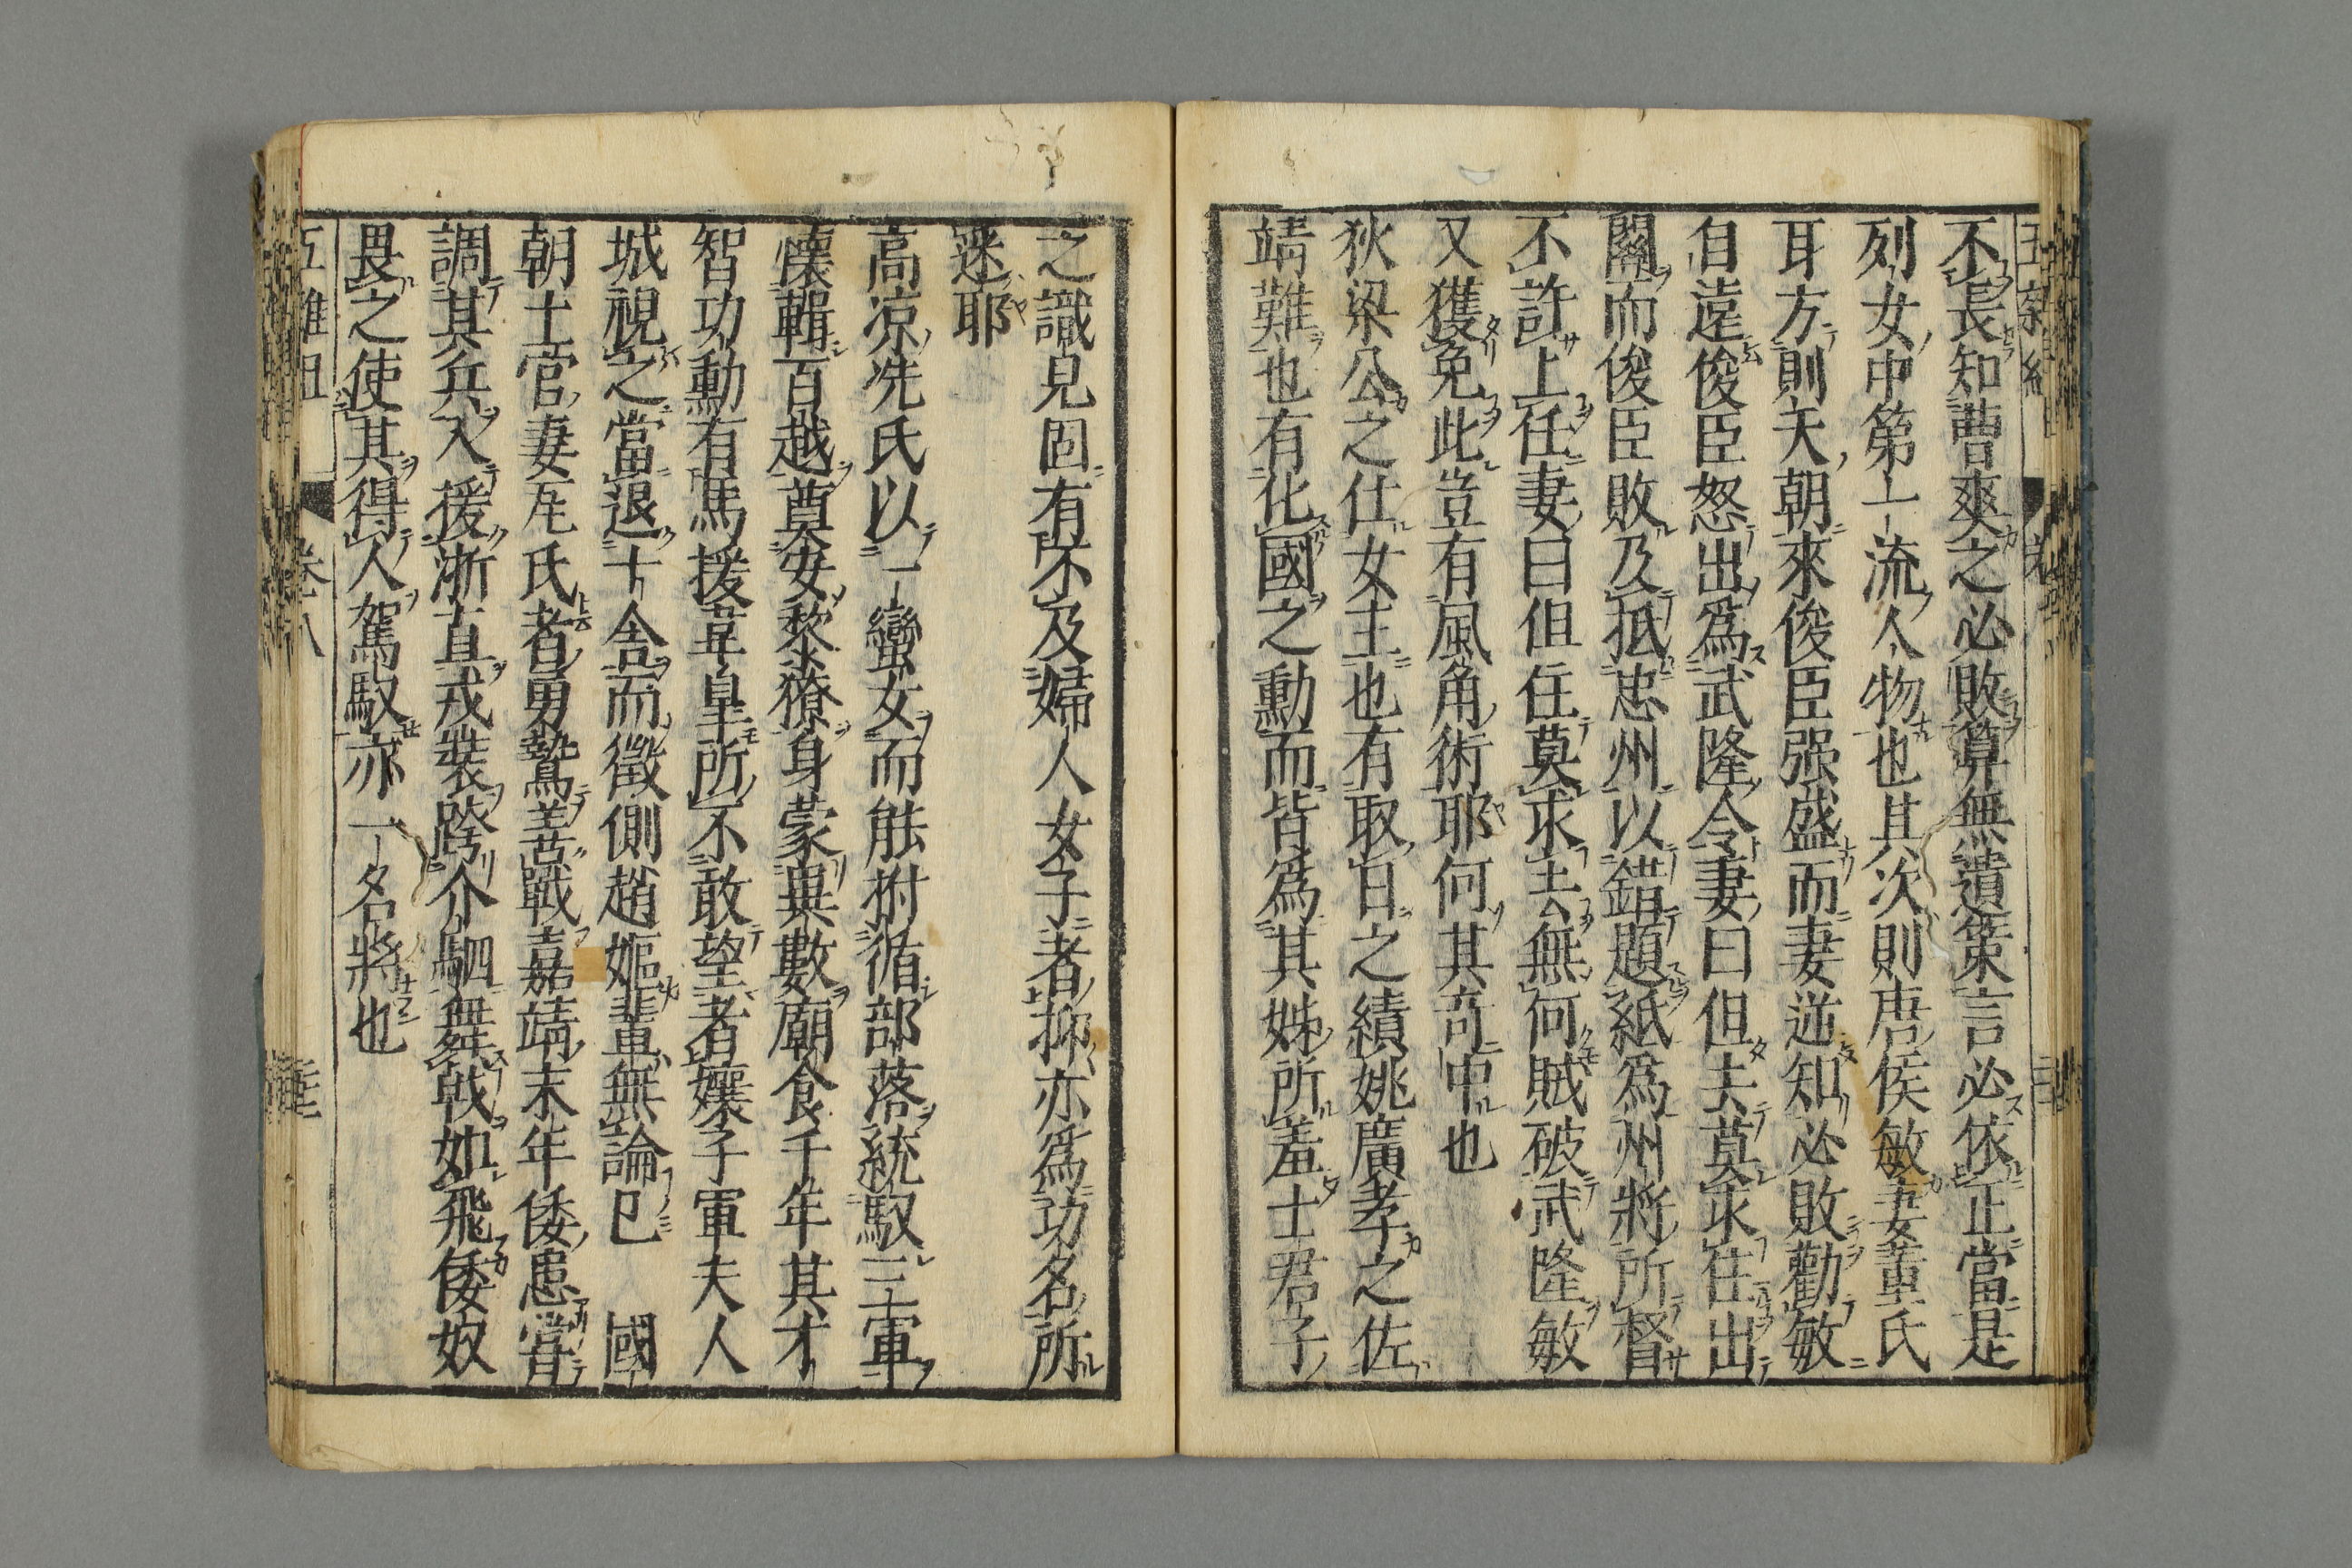 不長知曹爽之必敗算無遺策言必依正當是
列女中第一流人物也其次則唐侯敏妻董氏
耳方則天朝來俊臣强盛而妻逆知必敗勸敏
自遠俊臣怒出爲武隆令妻曰但去莫求住出
關而俊臣敗及抵忠州以錯題紙爲州將所督
不許上任妻曰但住莫求去無何賊破武隆敏
又獲免此豈有風角術耶何其奇中也
狄梁公之仕女主也有取日之績姚廣孝之佐
靖難也有化國之勳而皆爲其姊所羞士君子
之識見固有不及婦人女子者抑亦爲功名所
迷耶
高凉冼氏以一蠻女而能拊循部落統馭三軍
懷輯百越奠安黎獠身蒙異數廟食千年其才
智功勳有馬援韋皐所不敢望者孃子軍夫人
城視之當退十舍而徵側趙嫗輩無論已　國
朝土官妻瓦氏者勇鷙善戰嘉靖末年倭患嘗
調其兵入援浙直戎裝跨介駟舞戟如飛倭奴
畏之使其得人駕馭亦一名將也
五雜組　卷八